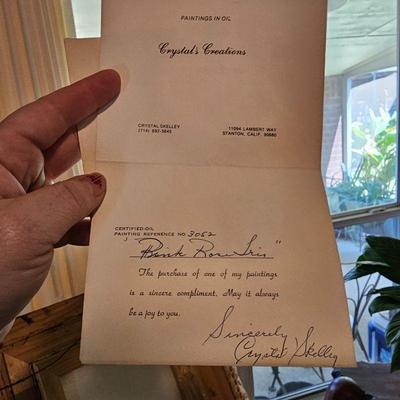 PAINTINGS IN OIL
Crystal's Creations
CRYSTAL SKELLEY 11094 LAMBERT WAY
(714) 892-5645 STANTON, CALIF. 90680
CERTIFIED-OIL
PAINTING REFERENCE NO. 3052
"Pink Rose Iris"
The purchase of one of my paintings
is a sincere compliment. May it always
be a joy to you.
Sincerely
Crystal Skelley